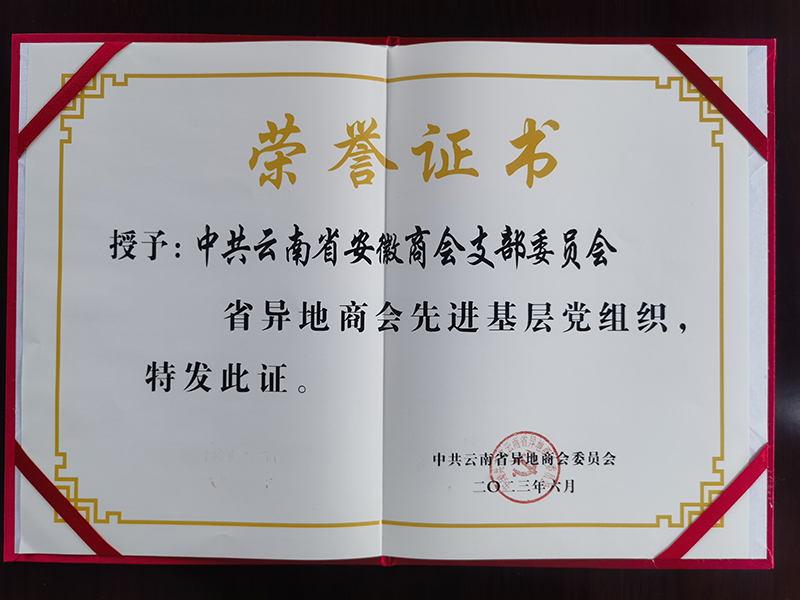 荣誉证书
授予：中共云南省安徽商会支部委员会
省异地商会先进基层党组织，
特发此证。
中共云南省异地商会委员会
二〇二三年六月